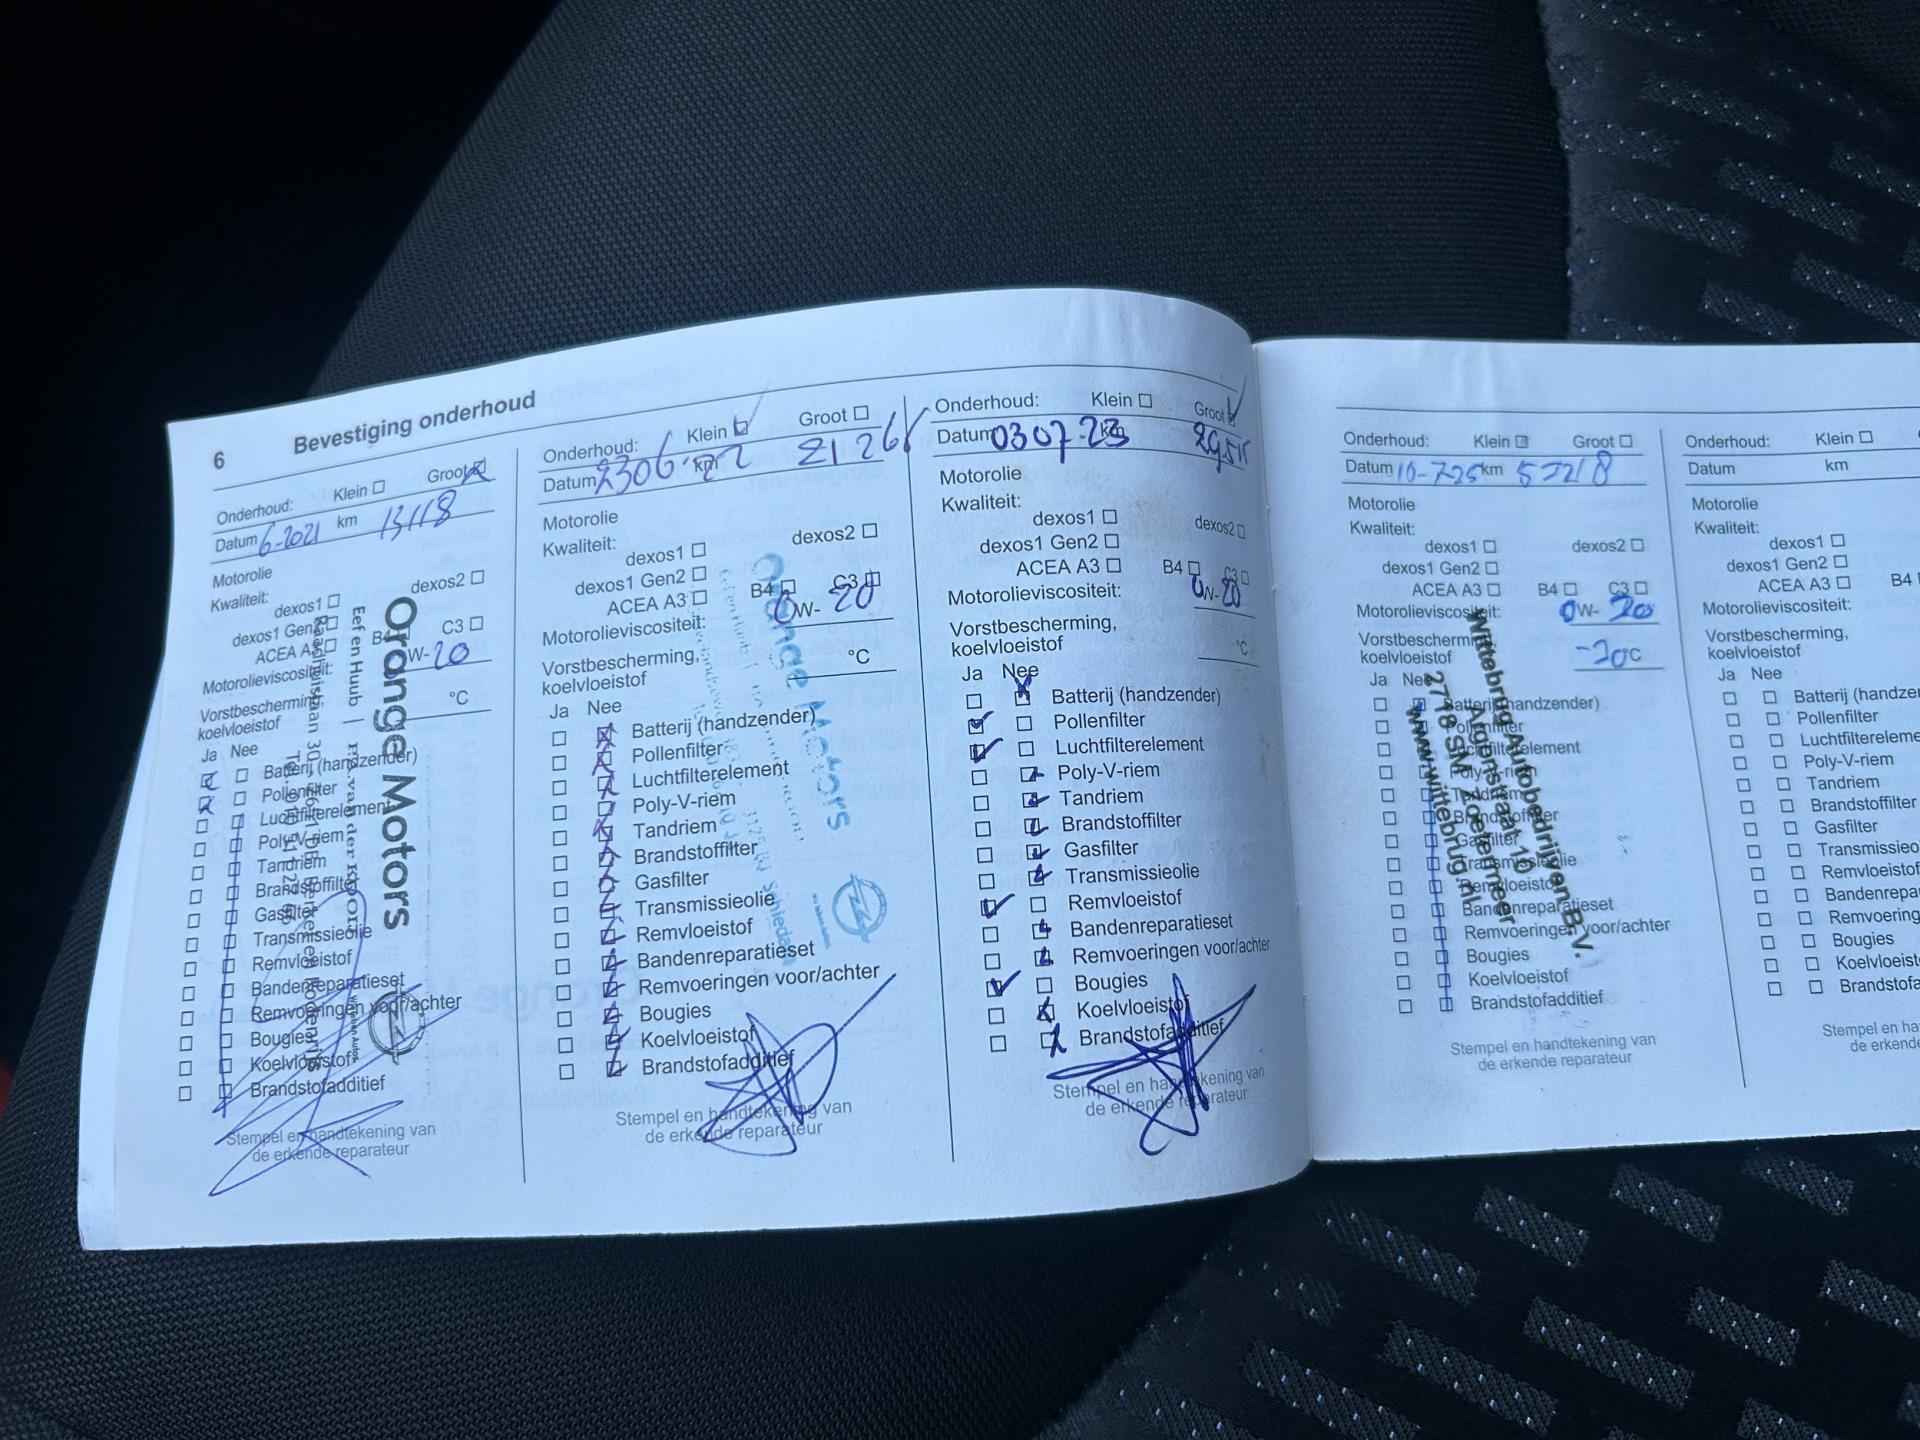 6 Bevestiging onderhoud
Onderhoud: Klein Groot
Datum 6-2021 km 13118
Motorolie
Kwaliteit:
dexos1 dexos2
dexos1 Gen2
ACEA A3 B4 C3
Motorolieviscositeit: W-20
Vorstbescherming,
koelvloeistof °C
Ja Nee
Batterij (handzender)
Pollenfilter
Luchtfilterelement
Poly-V-riem
Tandriem
Brandstoffilter
Gasfilter
Transmissieolie
Remvloeistof
Bandenreparatieset
Remvoeringen voor/achter
Bougies
Koelvloeistof
Brandstofadditief
Stempel en handtekening van
de erkende reparateur
Orange Motors
Eef en Huub
Onderhoud: Klein Groot
Datum 2306.22 km
Motorolie
Kwaliteit:
dexos1 dexos2
dexos1 Gen2
ACEA A3 B4 C3
Motorolieviscositeit: 0W-20
Vorstbescherming,
koelvloeistof °C
Ja Nee
Batterij (handzender)
Pollenfilter
Luchtfilterelement
Poly-V-riem
Tandriem
Brandstoffilter
Gasfilter
Transmissieolie
Remvloeistof
Bandenreparatieset
Remvoeringen voor/achter
Bougies
Koelvloeistof
Brandstofadditief
Stempel en handtekening van
de erkende reparateur
Orange Motors
Onderhoud: Klein Groot
Datum 0307-23 km
Motorolie
Kwaliteit:
dexos1 dexos2
dexos1 Gen2
ACEA A3 B4 C3
Motorolieviscositeit: 0W-20
Vorstbescherming,
koelvloeistof °C
Ja Nee
Batterij (handzender)
Pollenfilter
Luchtfilterelement
Poly-V-riem
Tandriem
Brandstoffilter
Gasfilter
Transmissieolie
Remvloeistof
Bandenreparatieset
Remvoeringen voor/achter
Bougies
Koelvloeistof
Brandstofadditief
Stempel en handtekening van
de erkende reparateur
Onderhoud: Klein Groot
Datum 10-725 km 57218
Motorolie
Kwaliteit:
dexos1 dexos2
dexos1 Gen2
ACEA A3 B4 C3
Motorolieviscositeit: 0W-20
Vorstbescherming,
koelvloeistof °C
Ja Nee
Batterij (handzender)
Pollenfilter
Luchtfilterelement
Poly-V-riem
Tandriem
Brandstoffilter
Gasfilter
Transmissieolie
Remvloeistof
Bandenreparatieset
Remvoeringen voor/achter
Bougies
Koelvloeistof
Brandstofadditief
Stempel en handtekening van
de erkende reparateur
Wittebrug Autobedrijven B.V.
Argonstraat 10
2718 SM Zoetermeer
www.wittebrug.nl
Onderhoud: Klein
Datum km
Motorolie
Kwaliteit:
dexos1
dexos1 Gen2
ACEA A3 B4
Motorolieviscositeit:
Vorstbescherming,
koelvloeistof
Ja Nee
Batterij (handze
Pollenfilter
Luchtfiltereleme
Poly-V-riem
Tandriem
Brandstoffilter
Gasfilter
Transmissieo
Remvloeistof
Bandenrepa
Remvoering
Bougies
Koelvloeist
Brandstofa
Stempel en ha
de erkende